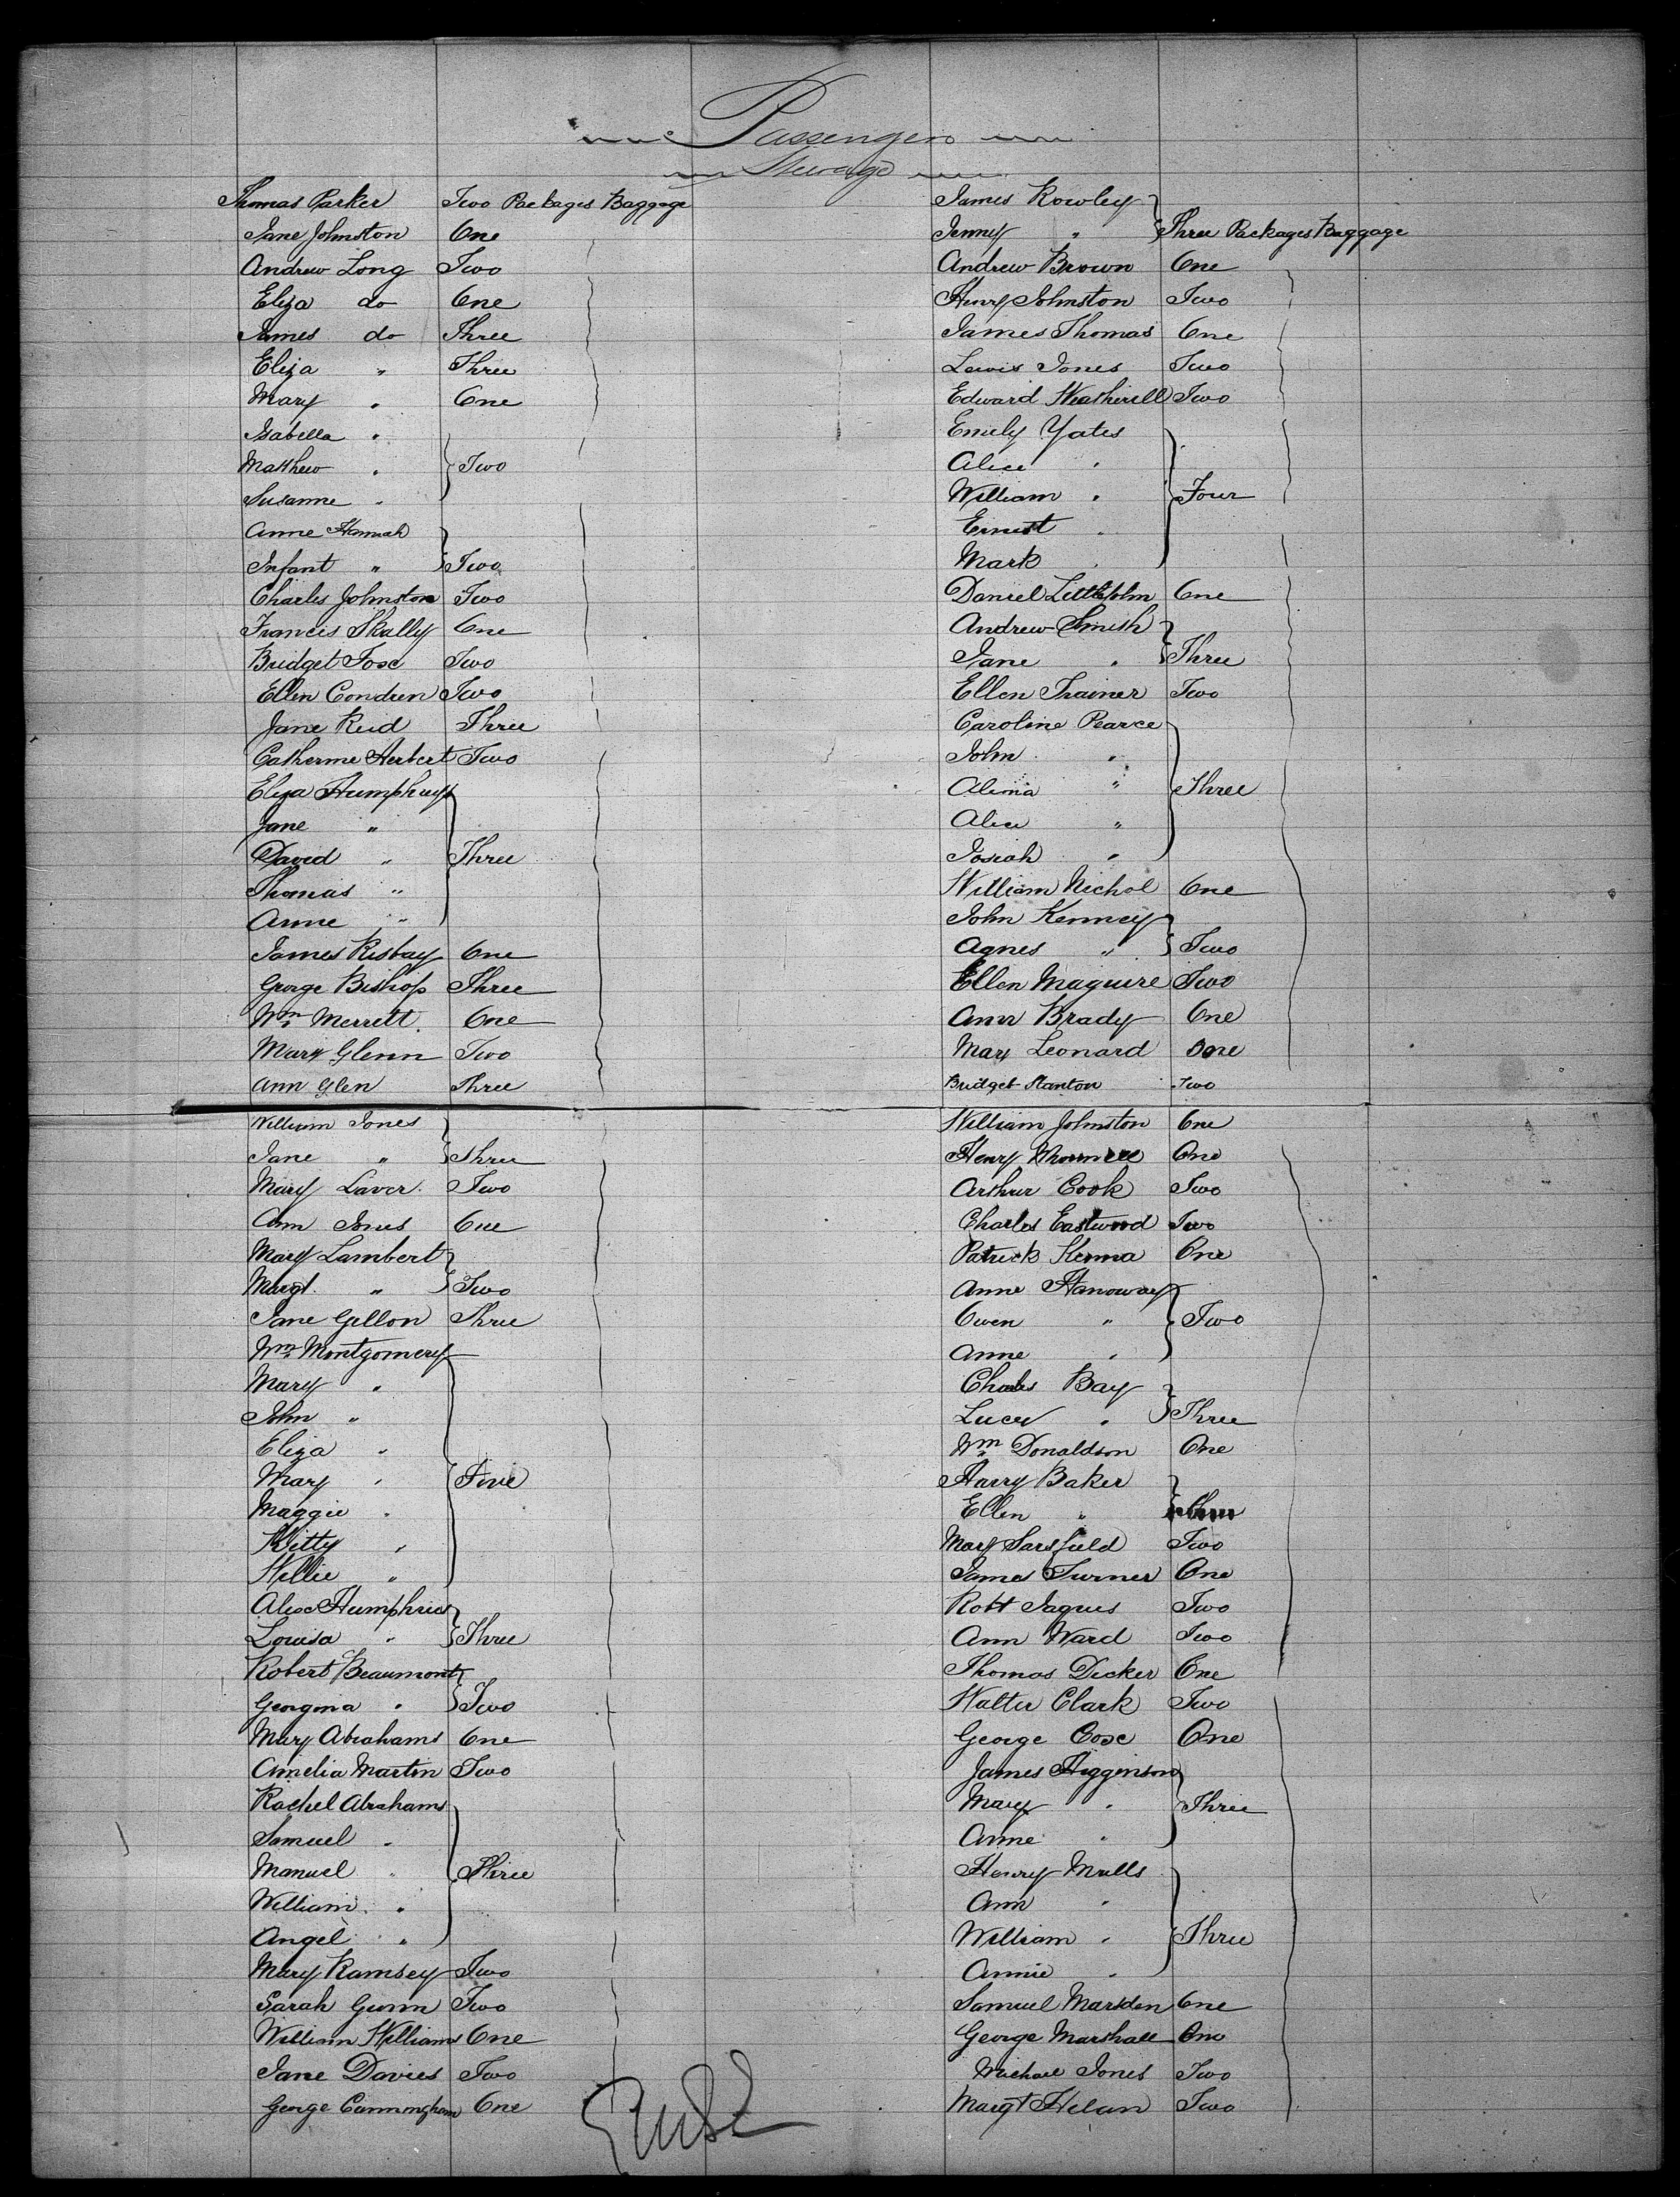 Passengers
Steerage
Thomas Parker Two Packages Baggage
Jane Johnston One
Andrew Long Two
Eliza do One
James do Three
Eliza " Three
Mary " One
Isabella "
Matthew " Two
Susanne "
Anne Hannah
Infant " Two
Charles Johnston Two
Francis Skally One
Bridget Fox Two
Ellen Condren Two
Jane Reid Three
Catherine Herbert Two
Eliza Humphreys
Jane "
David " Three
Thomas "
Anne "
James Risbay One
George Bishop Three
Wm Merrett. One
Mary Glenn Two
Ann Glen Three
William Jones
Jane " Three
Mary Laver. Two
Ann Jones One
Mary Lambert
Margt. " Two
Jane Gellon Three
Wm Montgomery
Mary "
John "
Eliza "
Mary " Five
Maggie "
Kitty "
Willie "
Alex Humphries
Louisa " Three
Robert Beaumont
Georgina " Two
Mary Abrahams One
Amelia Martin Two
Rachel Abrahams
Samuel "
Manuel " Three
William "
Angel "
Mary Ramsey Two
Sarah Gunn Two
William Williams One
Jane Davies Two
George Cunningham One
James Rowley
Jenny " Three Packages Baggage
Andrew Brown One
Henry Johnston Two
James Thomas One
Lewis Jones Two
Edward Weatherell Two
Emily Yates
Alice "
William " Four
Ernest "
Mark "
Daniel One
Andrew Smith
Jane " Three
Ellen Trainer Two
Caroline Pearce
John "
Alma " Three
Alice "
Josiah "
William Nichol One
John Kenney
Agnes " Two
Ellen Maguire Two
Ann Brady One
Mary Leonard One
Bridget Stanton Two
William Johnston One
Henry One
Arthur Cook Two
Charles Eastwood Two
Patrick Kenna One
Anne Hanoway
Owen " Two
Anne "
Charles Bay
Lucy " Three
Wm Donaldson One
Harry Baker
Ellen "
Mary Sarsfield Two
James Turner One
Robt Jaques Two
Ann Ward Two
Thomas Decker One
Walter Clark Two
George Cox One
James Higginson
Mary " Three
Anne "
Henry Mulls
Ann "
William " Three
Annie "
Samuel Marsden One
George Marshall One
Michael Jones Two
Margt Helan Two